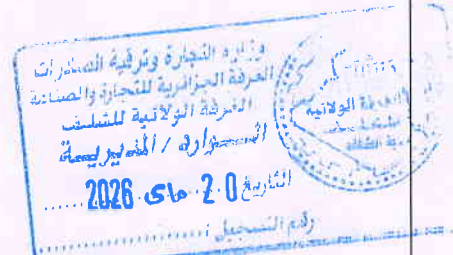 وزارة التجارة وترقية الصادرات
الغرفة الجزائرية للتجارة والصناعة
الغرفة الولائية للشلف
الـــــــوارد / المديريـــة
التاريخ 2.0 ماي 2026......
رقم التسجيل :......................
الولائية